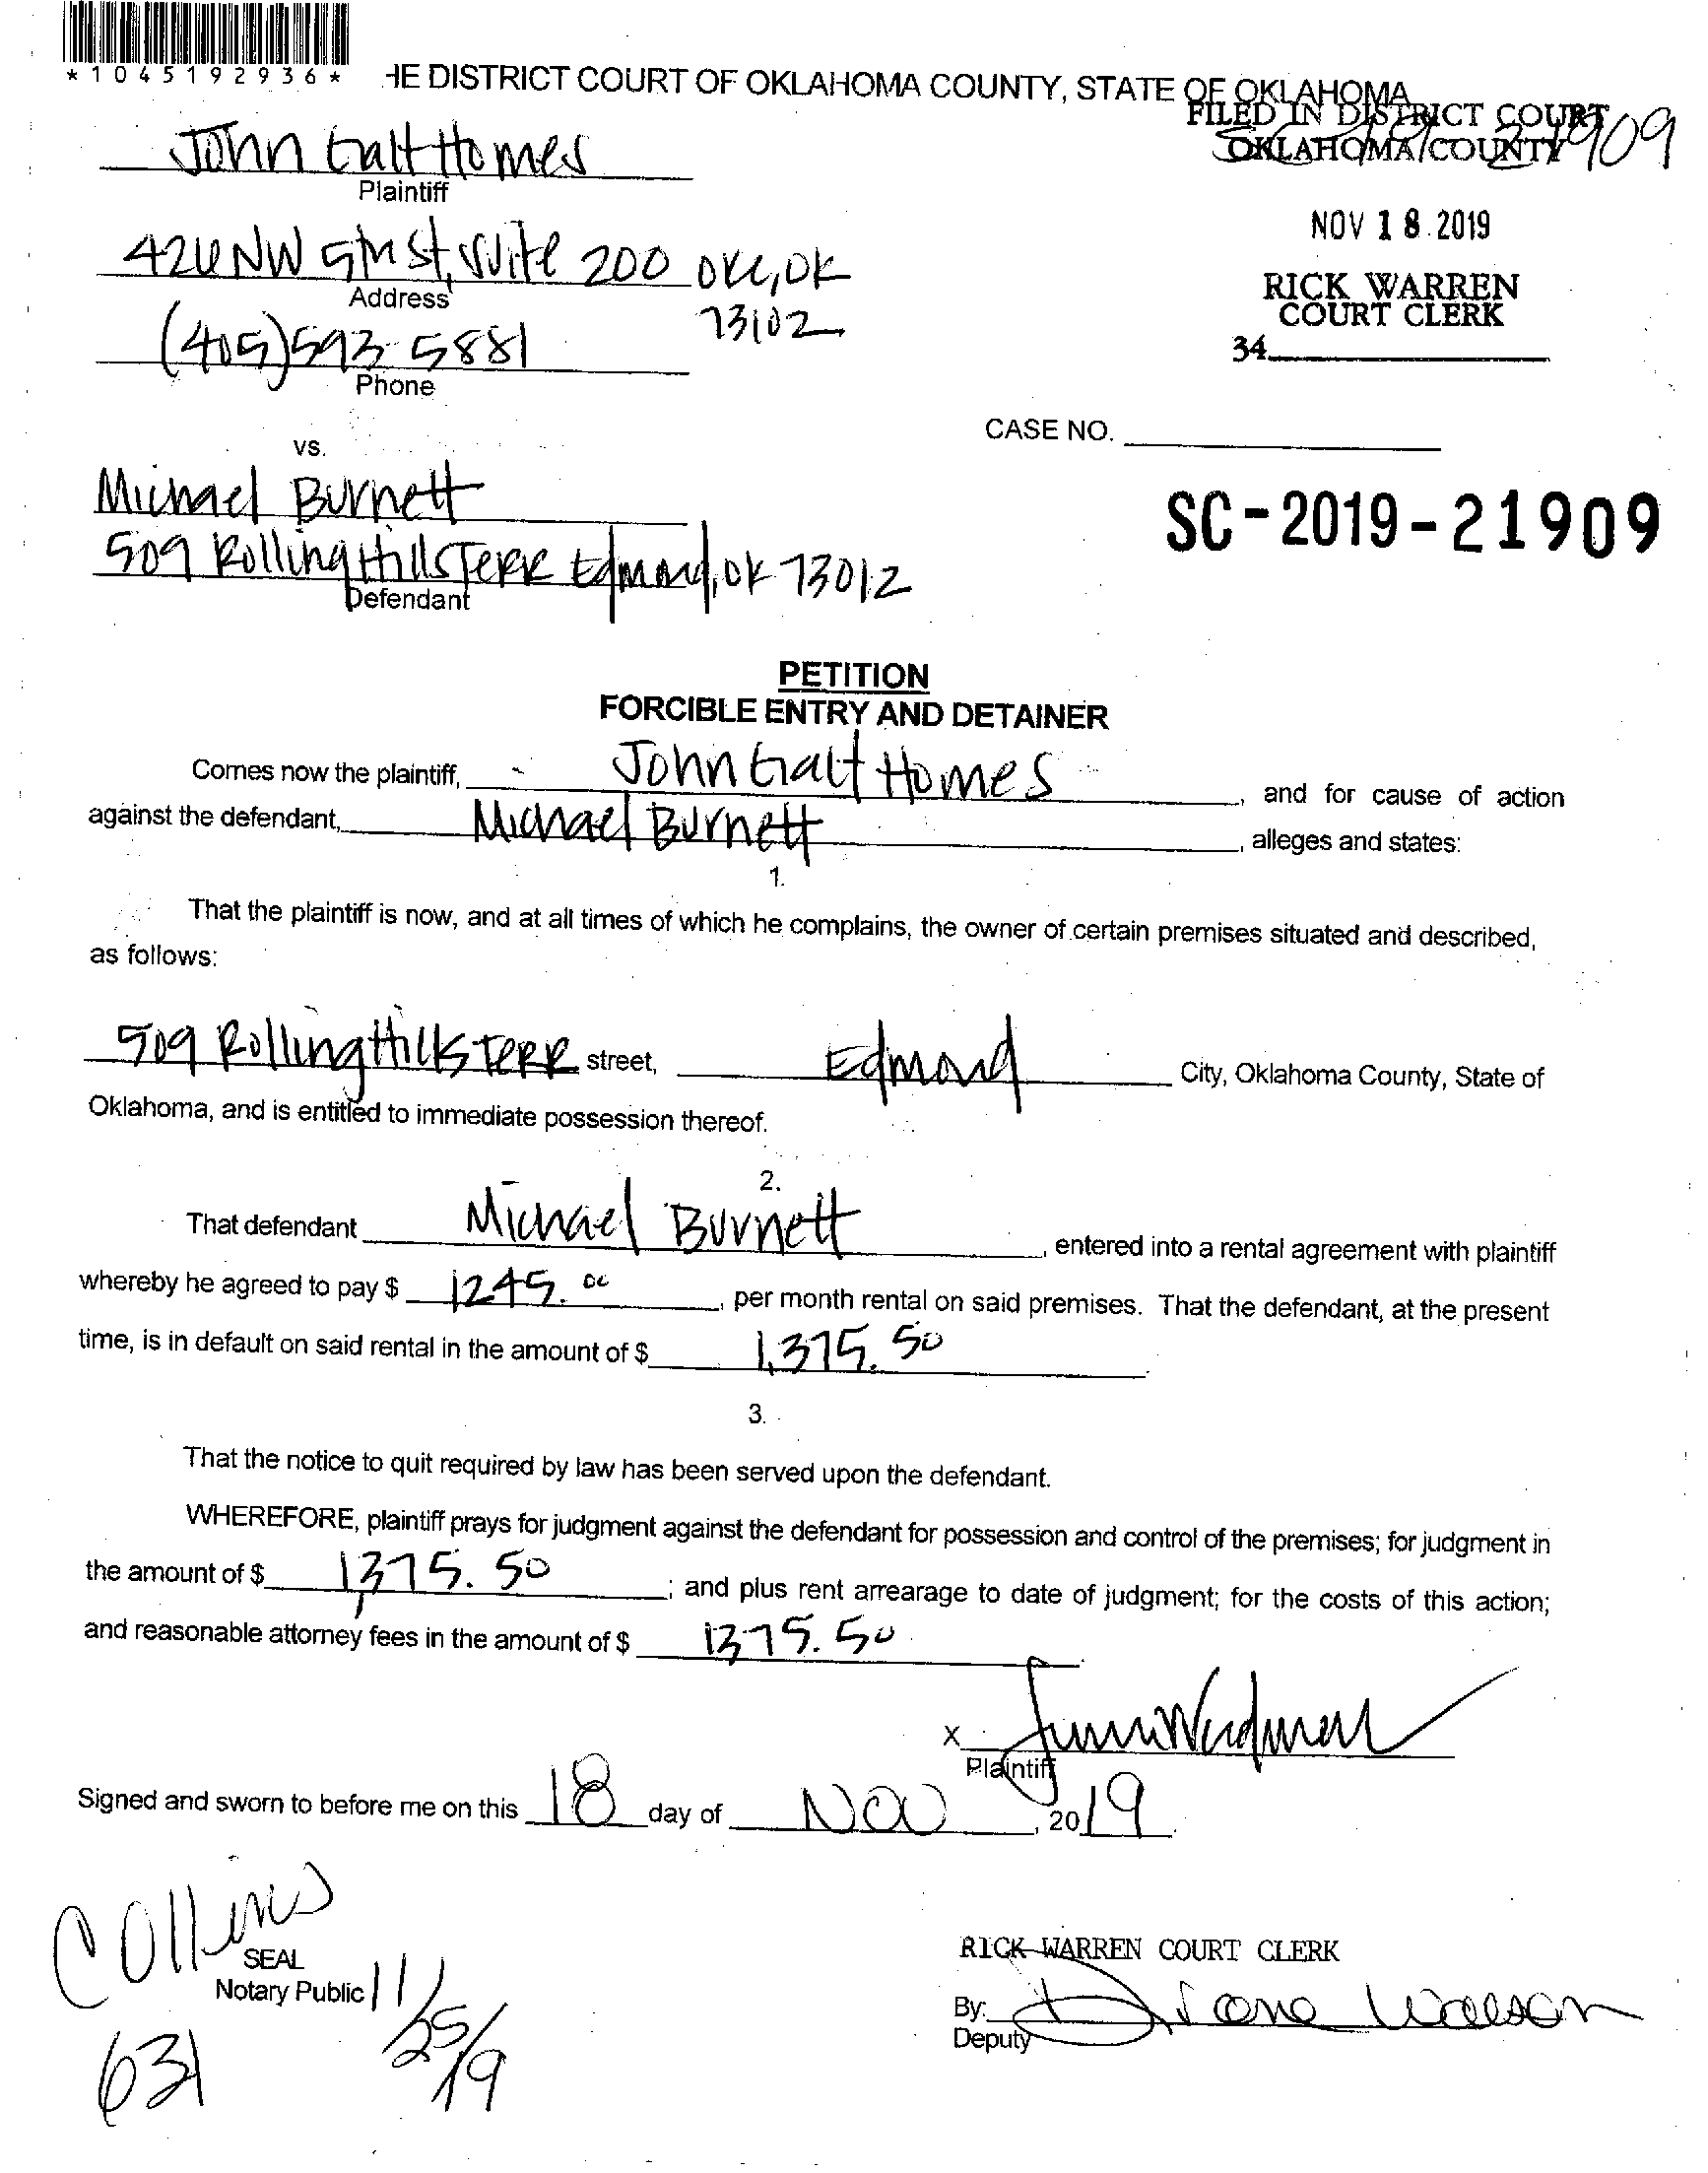 *1045192936*
HE DISTRICT COURT OF OKLAHOMA COUNTY, STATE OF OKLAHOMA
FILED IN DISTRICT COURT
OKLAHOMA COUNTY
SC 19 21909
John Galt Homes
Plaintiff
NOV 18 2019
426 NW 5th St, Suite 200 OKC, OK
Address
73102
RICK WARREN
COURT CLERK
34
(405) 593-5881
Phone
CASE NO.
vs.
Michael Burnett
SC-2019-21909
509 Rolling Hills Terr Edmond, OK 73012
Defendant
PETITION
FORCIBLE ENTRY AND DETAINER
Comes now the plaintiff, John Galt Homes, and for cause of action
against the defendant, Michael Burnett, alleges and states:
1.
That the plaintiff is now, and at all times of which he complains, the owner of certain premises situated and described,
as follows:
509 Rolling Hills Terr street, Edmond City, Oklahoma County, State of
Oklahoma, and is entitled to immediate possession thereof.
2.
That defendant Michael Burnett, entered into a rental agreement with plaintiff
whereby he agreed to pay $ 1245.00, per month rental on said premises. That the defendant, at the present
time, is in default on said rental in the amount of $ 1,375.50.
3.
That the notice to quit required by law has been served upon the defendant.
WHEREFORE, plaintiff prays for judgment against the defendant for possession and control of the premises; for judgment in
the amount of $ 1,375.50; and plus rent arrearage to date of judgment; for the costs of this action;
and reasonable attorney fees in the amount of $ 1375.50.
X
Plaintiff
Signed and sworn to before me on this 18 day of Nov, 2019.
Collins
SEAL
Notary Public
11/25/19
631
RICK WARREN COURT CLERK
By: Diane Wilson
Deputy